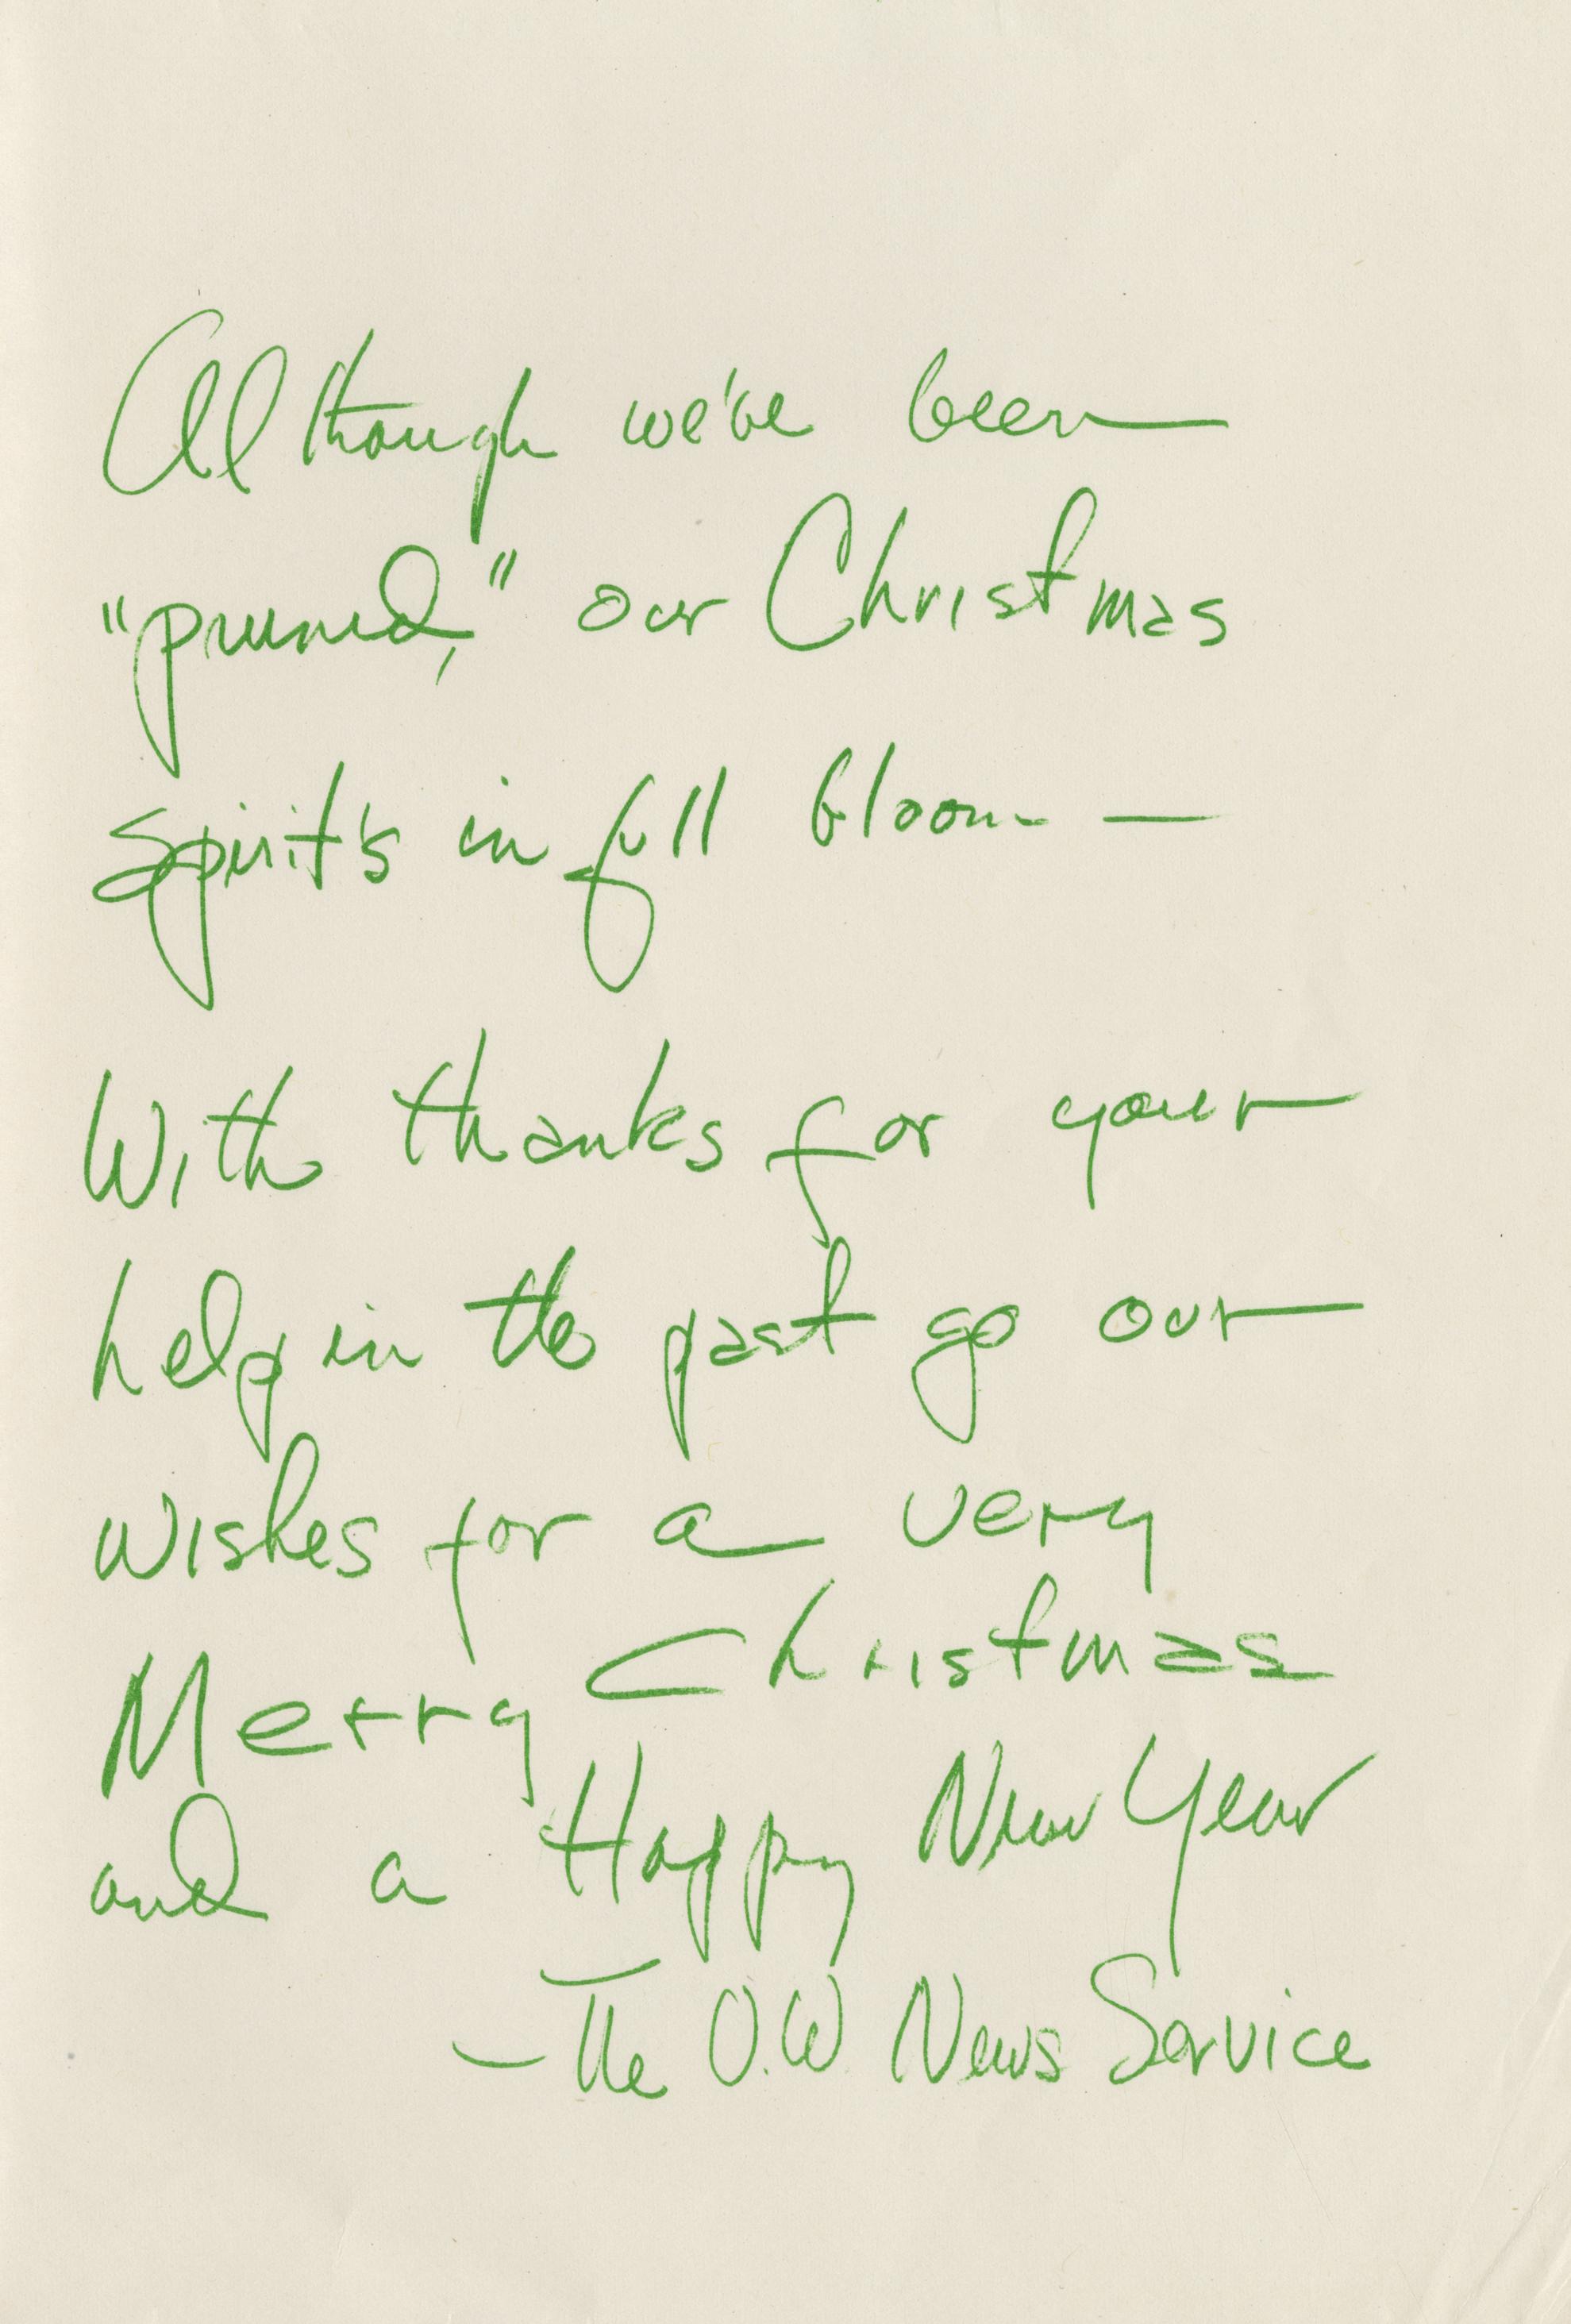 Although we've been
"pruned," our Christmas
spirit's in full bloom —
With thanks for your
help in the past go our
wishes for a very
Merry Christmas
and a Happy New Year
— The O.W. News Service